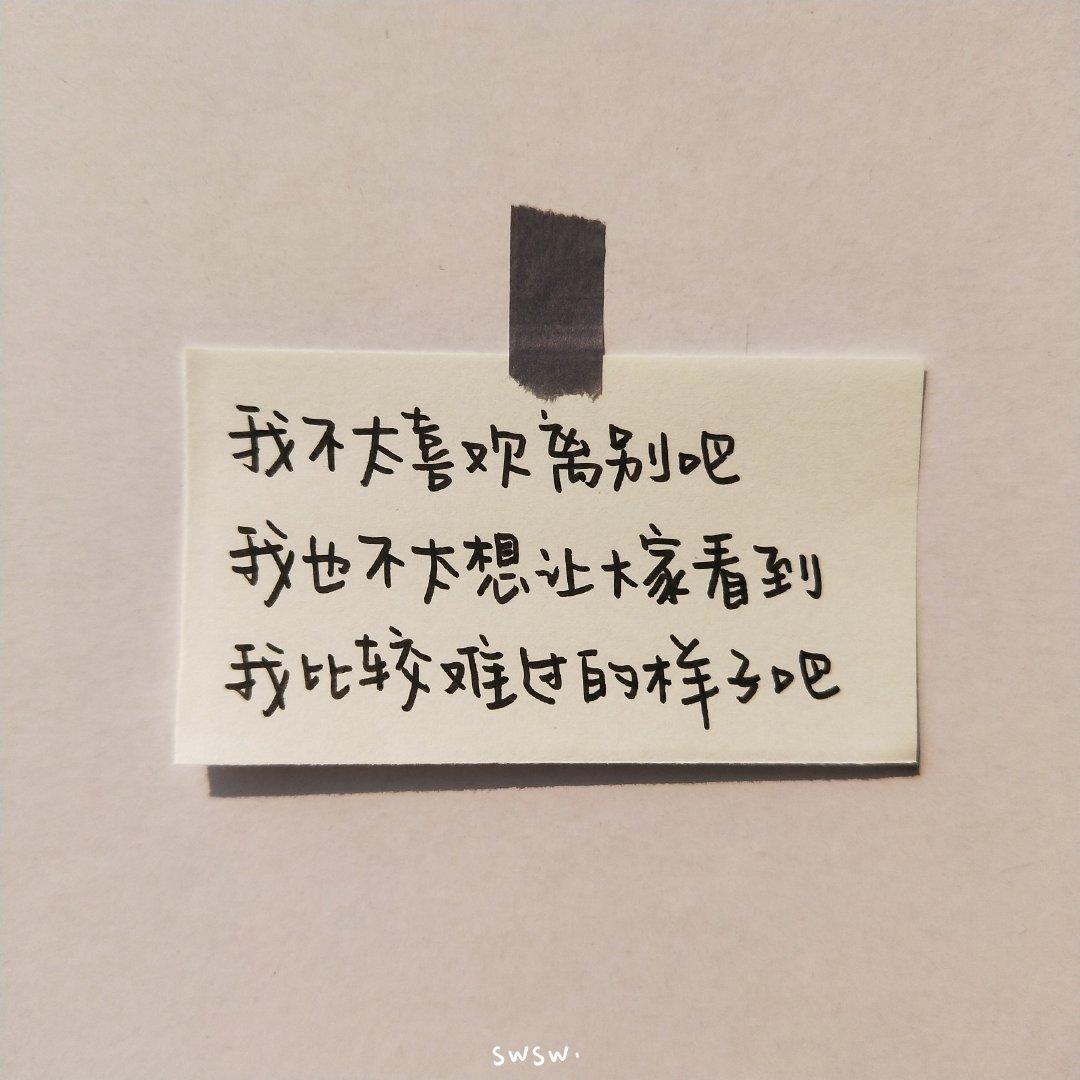 我不太喜欢离别吧
我也不太想让大家看到
我比较难过的样子吧
swsw.